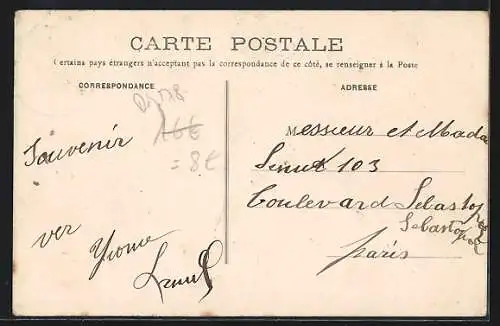 CARTE POSTALE
Certains pays étrangers n'acceptant pas la correspondance de ce côté, se renseigner à la Poste
CORRESPONDANCE
16€
= 8€
Souvenir
ver
Yvonne
ADRESSE
Messieur et Mada
103
Boulevard Sebastopol
Sebastopol
paris